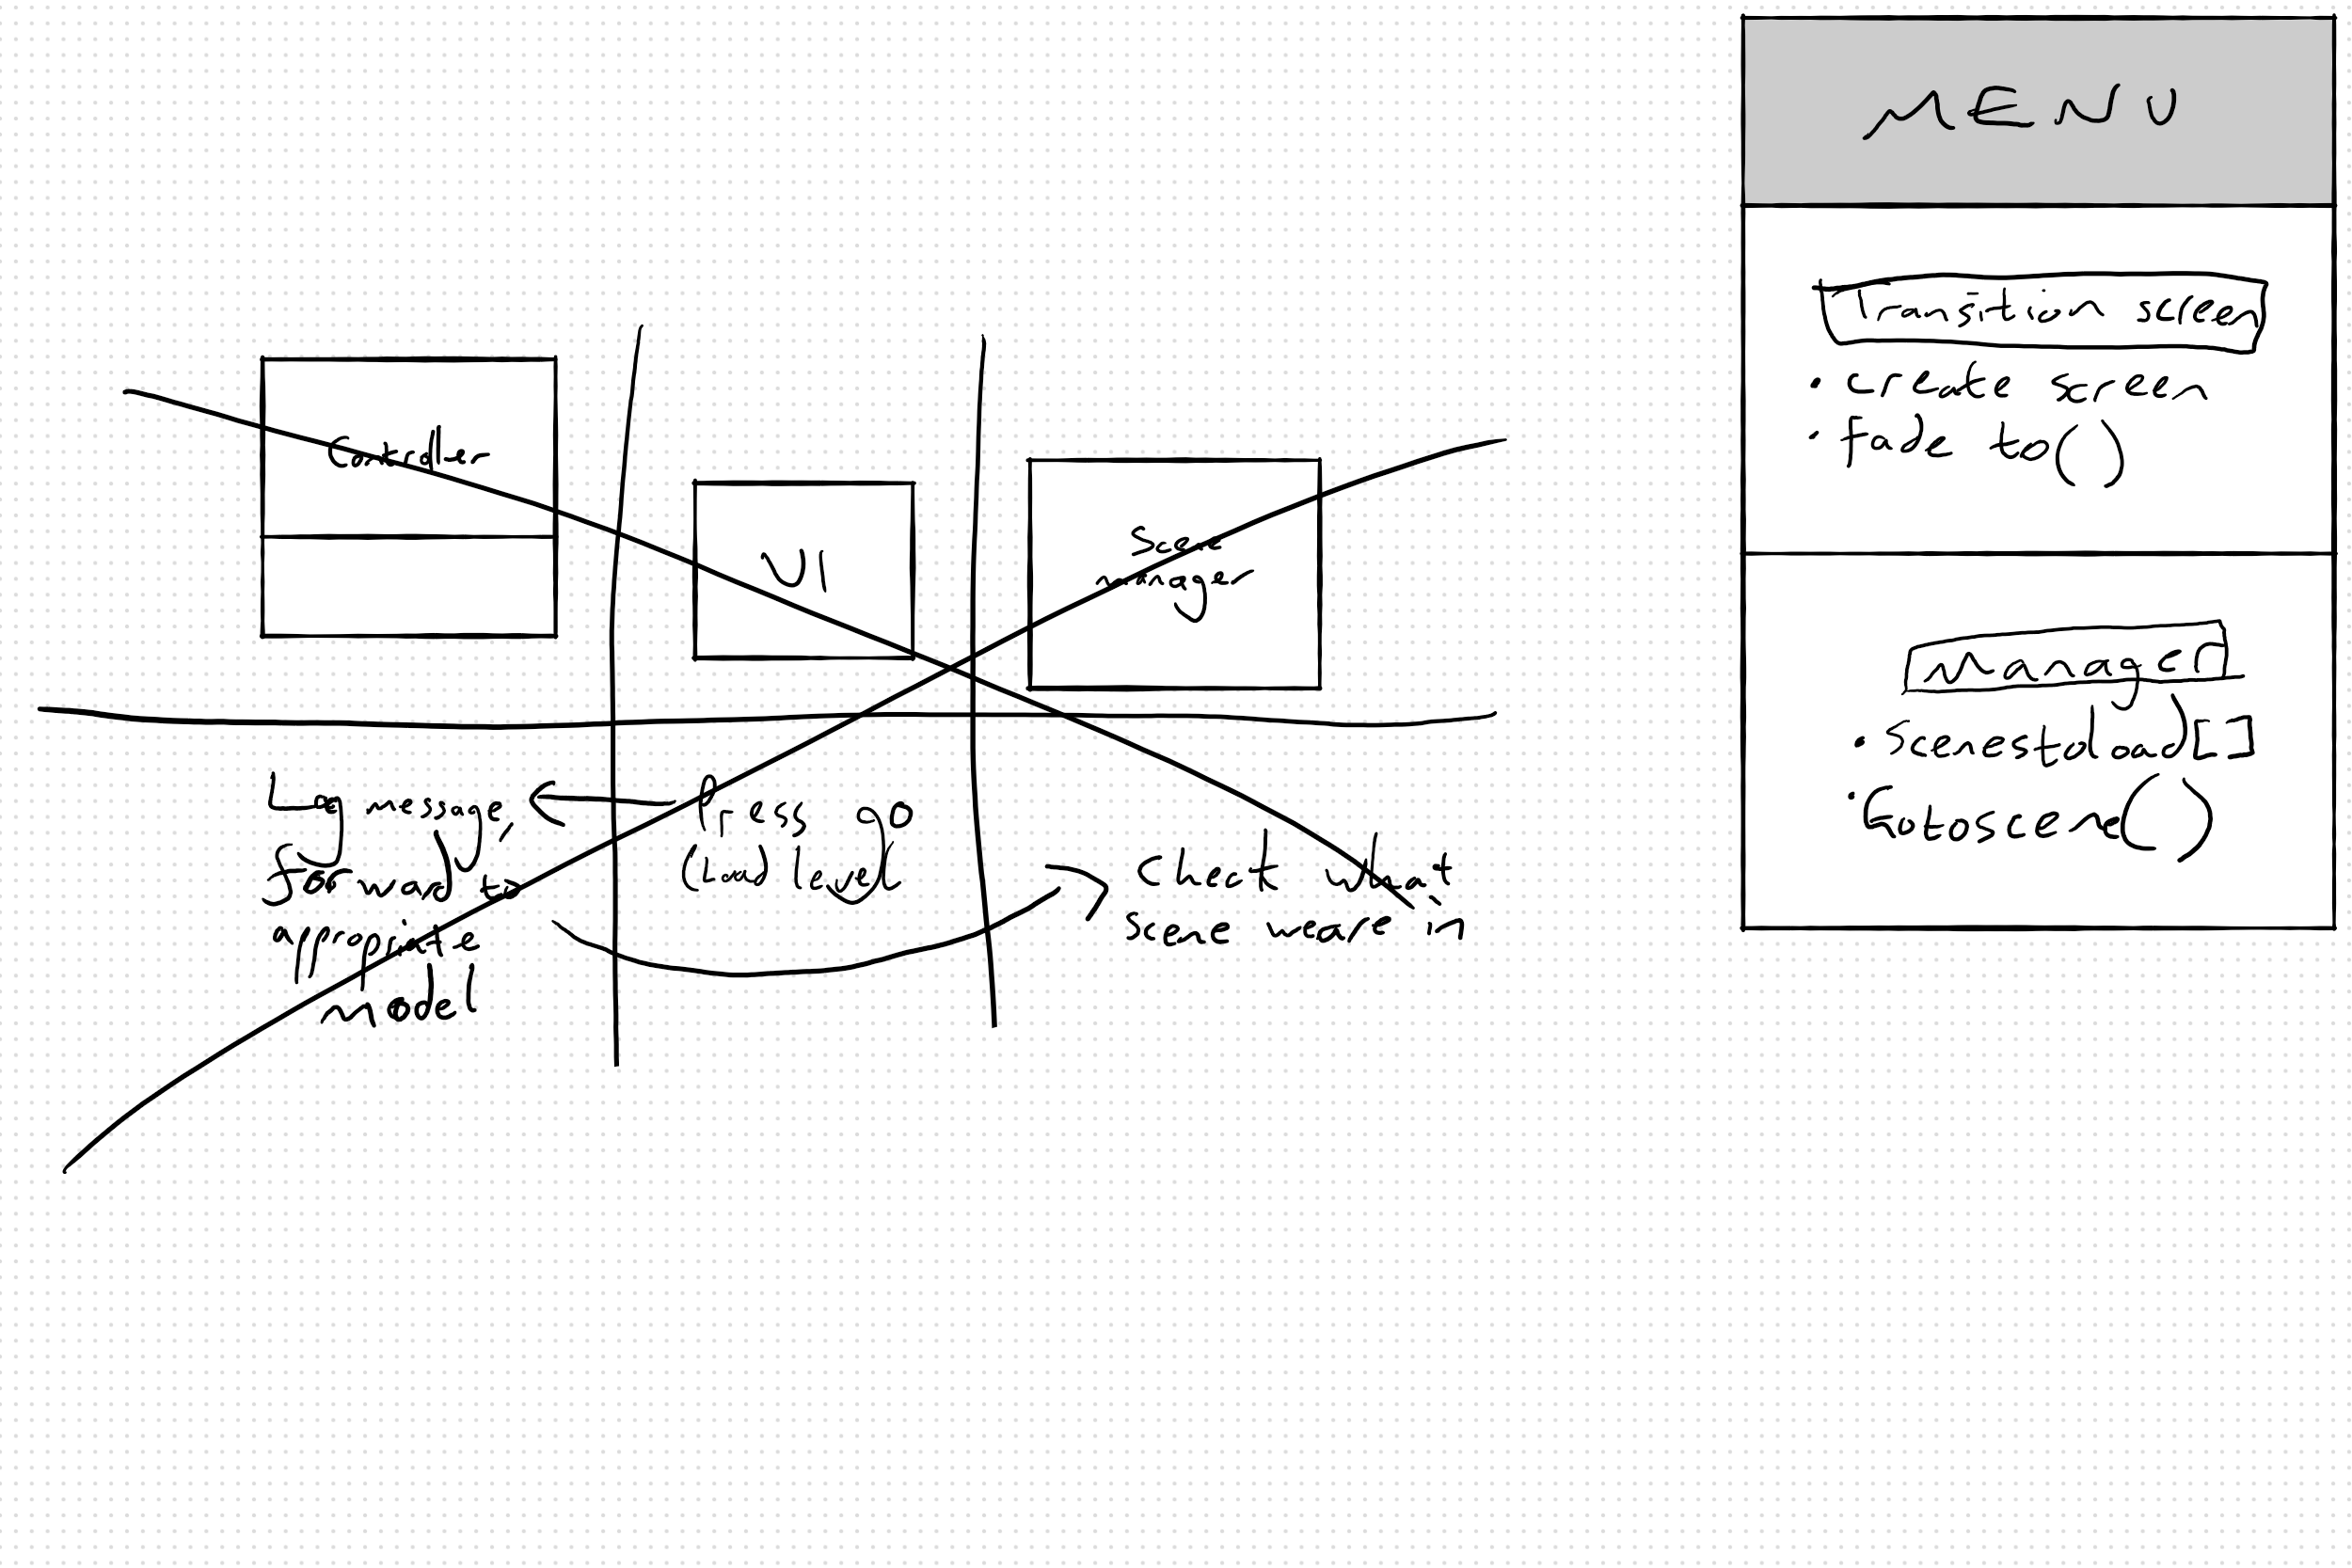 Controller
UI
Scene
manager
Log message,
forward to
appropriate
model
Press go
(Load level
Check what
scene we are in
MENU
Transition screen
• create screen
• fade to()
Manager
• scenestoload[]
• Gotoscene()